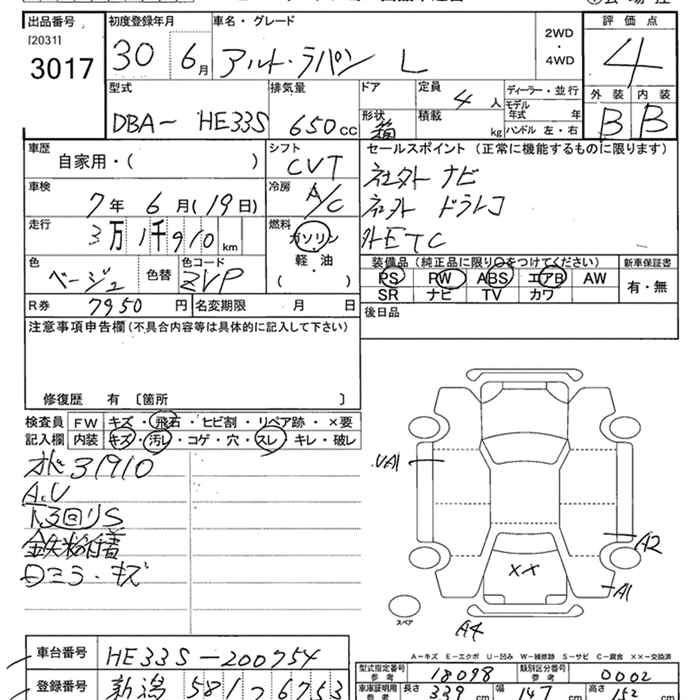 出品番号 初度登録年月 車名・グレード 2WD・4WD 評価点
[2031] 3017 30 6月 アルト・ラパン L 4
外装 内装
B B
型式 排気量 ドア 定員 ディーラー・並行
DBA- HE33S 650cc 形状 箱 4人 積載 kg モデル年式 年 ハンドル 左・右
車歴 シフト セールスポイント (正常に機能するものに限ります)
自家用・( ) CVT 社外 ナビ
車検 冷房 社外 ドラレコ
7年 6月(19日) A/C 外ETC
走行 燃料
3万1千910km ガソリン・軽・油 ( )
装備品(純正品に限り○をつけてください) 新車保証書
PS PW ABS エアB AW 有・無
SR ナビ TV カワ
色 色替 色コード
ベージュ ZVP
R券 7950円 名変期限 月 日
後日品
注意事項申告欄(不具合内容等は具体的に記入して下さい)
修復歴 有 〔箇所 〕
検査員 FW キズ・飛石・ヒビ割・リペア跡・×要
記入欄 内装 キズ・汚レ・コゲ・穴・スレ・キレ・破レ
オド31910
A.U
下回りS
鉄粉付着
Dミラ・キズ
UA1
A2
××
A1
スペア
A4
A-キズ E-エクボ U-凹み W-補修跡 S-サビ C-腐食 ××-交換済
車台番号 HE33S-200754
型式指定番号 参考 18098 類別区分番号 参考 0002
登録番号 新潟 581 つ 6753
車庫証明用 参考 長さ 339cm 幅 147cm 高さ 152cm